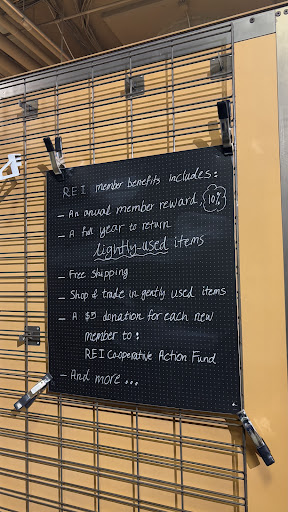 REI member benefits includes:
- An anual member reward, 10%
- A full year to return
lightly-used items
- Free Shipping
- Shop & trade in gently used items
- A $5 donation for each new
member to:
REI Cooperative Action Fund
- And more...